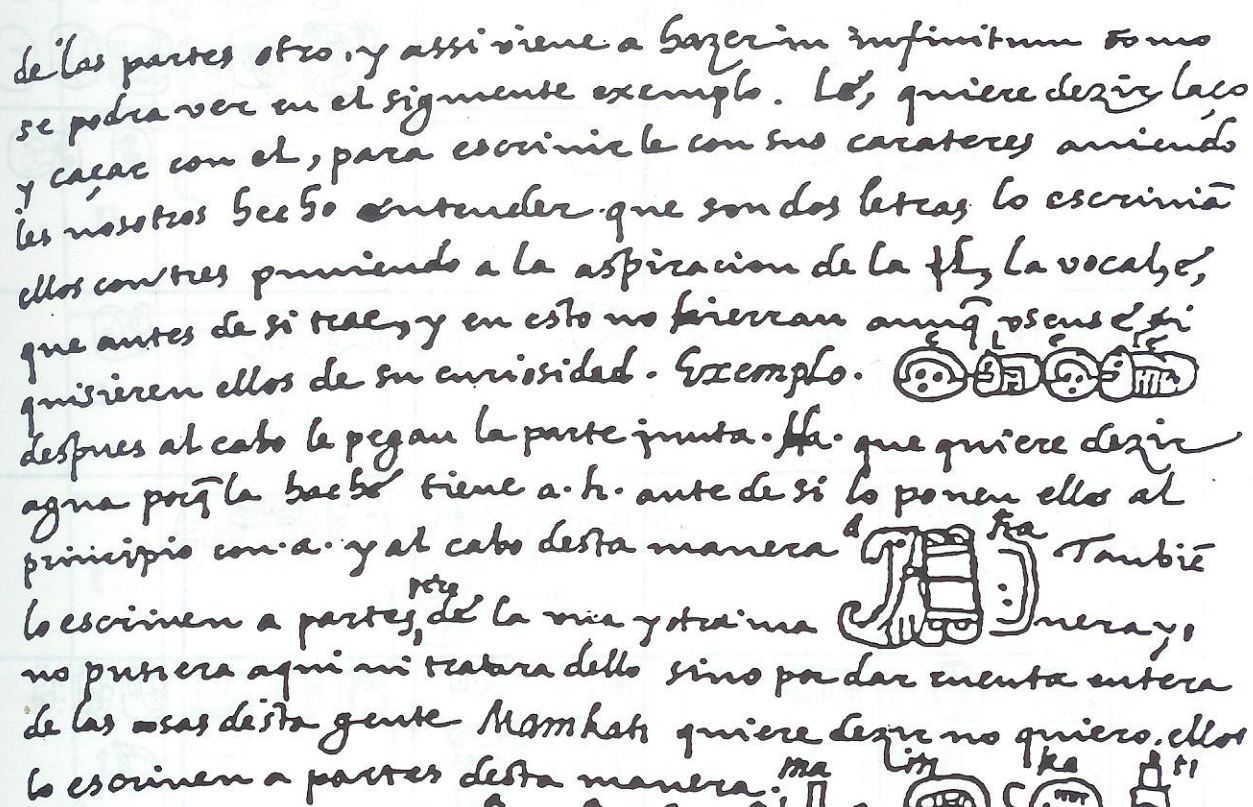 de las partes otro, y assi viene a hazer in infinitum como
se podra ver en el siguiente exemplo. Lé, quiere dezir laço
y caçar con el, para escrivirle con sus carateres aviendo
les nosotros hecho entender que son dos letras lo escrivia͞
ellos con tres puniendo a la aspiracion de la ł, la vocal, é,
que antes de si trae, y en esto no hierran aunq͞ usense
quisieren ellos de su curiosidad. Exemplo.
e L e Le
despues al cabo le pegan la parte junta. Ha. que quiere dezir
agua porq͞ la haché tiene a.h. ante de si lo ponen ellos al
principio con.a. y al cabo desta manera
a ha
Tambie͞
lo escriven a partes, pero de la una y otra ma nera y,
no pusiera aqui ni tratara dello sino por dar cuenta entera
de las cosas desta gente Mamkati quiere dezir no quiero, ellos
lo escriven a partes desta manera.
ma in ka ti